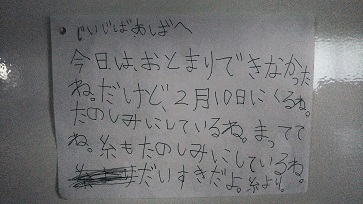 じいじばあばへ
今日は、おとまりできなかった
ね。だけど、2月10日にくるね。
たのしみにしているね。まってて
ね。糸もたのしみにしているね。
だいすきだよ。糸より。